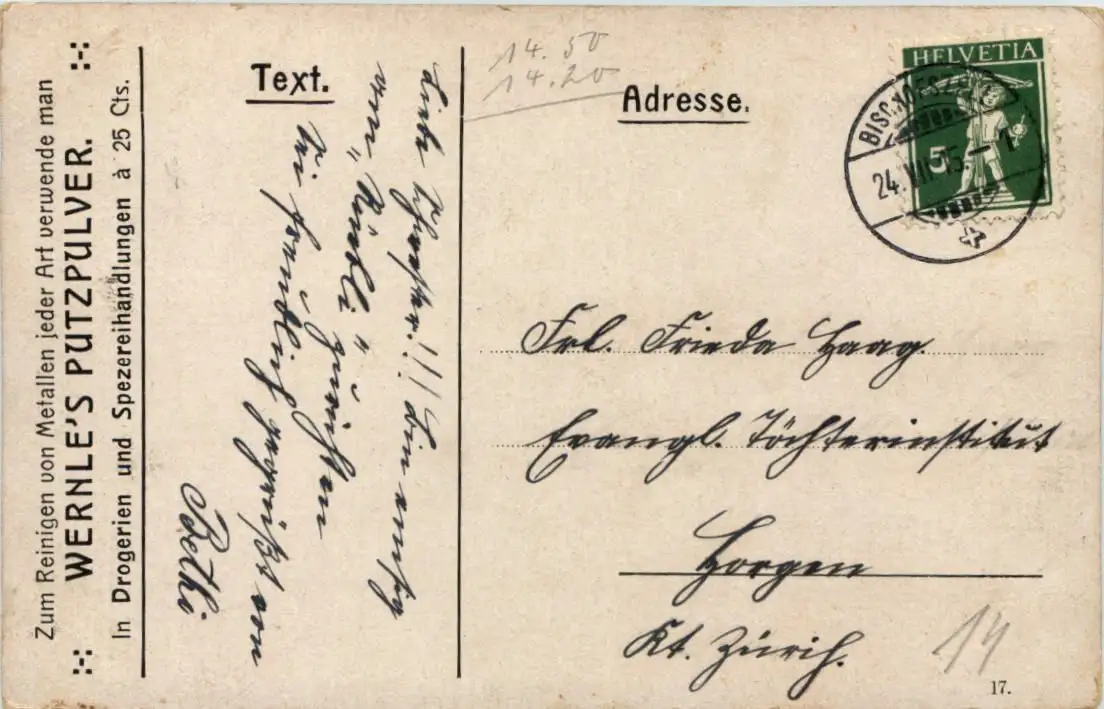 Zum Reinigen von Metallen jeder Art verwende man
WERNLE'S PUTZPULVER.
In Drogerien und Spezereihandlungen à 25 Cts.
Text.
Liebe Schwester!!! Bin
vom "Rindli"
Sei freundlich gegrüßt von
Bethi
14.50
14.20
Adresse.
HELVETIA
5
BISCHOFSZELL
24.VII.15.-1
Frl. Frieda Haag.
Evangl. Töchterinstitut
Horgen
Kt. Zürich.
14
17.